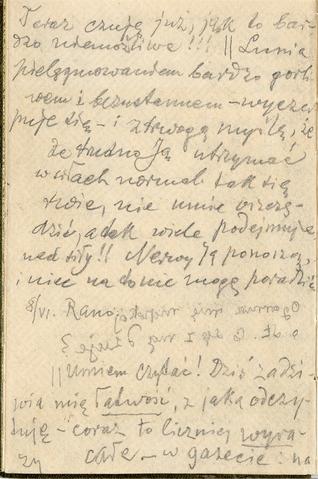 Teraz czuję już, jak to bar-
dzo niemożliwe!!! || Lunia
pielęgnowaniem bardzo gorli-
wem i bezustannem – wyczer
puje się – i z trwogą myślę, że
że trudno Ją utrzymać
w siłach normal tak się
rwie, nie umie oszczę-
dzić, a tak wiele podejmuje
nad siły!! Nerwy Ją ponoszą,
i nic na to nie mogę poradzić
8/VI. Rano
|| Umiem czytać! Dziś zadzi-
wia mię łatwość, z jaką odczy-
tuję – coraz to liczniej wyra-
zy całe – w gazecie: na